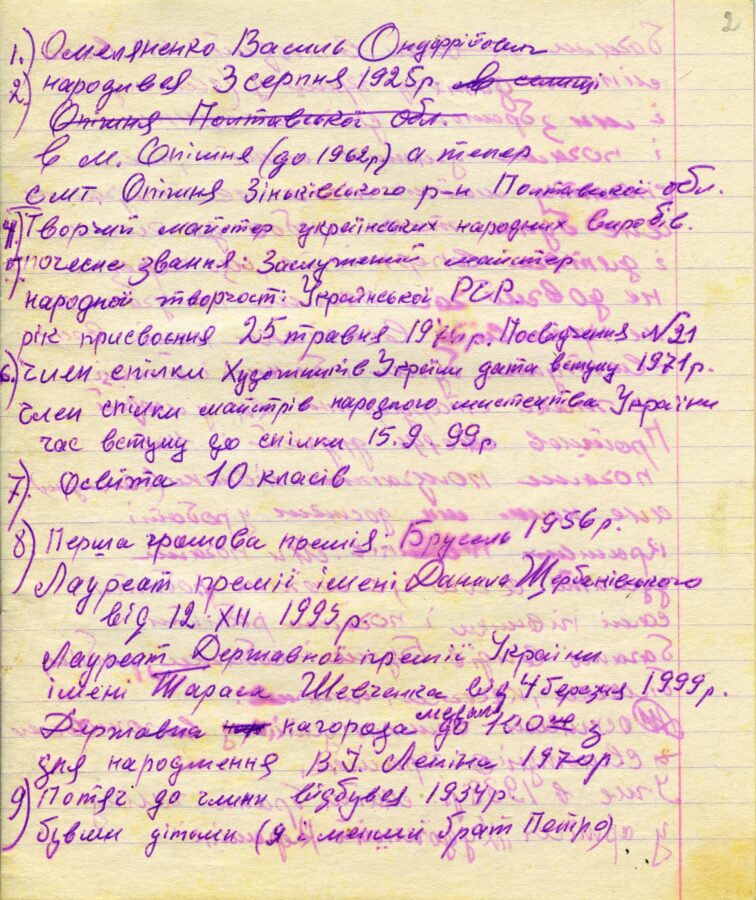 2
1.) Омеляненко Василь Онуфрійович
2.) народився 3 серпня 1925р. в селищі
Опішня Полтавської обл.
в м. Опішня (до 1962р) а тепер
смт Опішня Зіньківського р-н Полтавської обл.
4.) Творчий майстер українських народних виробів.
5.) почесне звання: Заслужений майстер
народної творчості Української РСР
рік присвоєння 25 травня р. Посвідчення №21
6.) член спілки Художників України дата вступу 1971р.
член спілки майстрів народного мистецтва України
час вступу до спілки 15.9 99р
7). Освіта 10 класів
8) Перша грошова премія Брусель 1956р.
Лауреат премії імені Данила Щербаківського
від 12 XII 1995р.
Лауреат Державної премії України
імені Тараса Шевченка від 4 березня 1999р.
Державна нагорода медаль до 100 з
дня народження В.І. Леніна 1970р
9) Потяг до глини відбувся 1934р.
бувши дітьми (я і менший брат Петро)